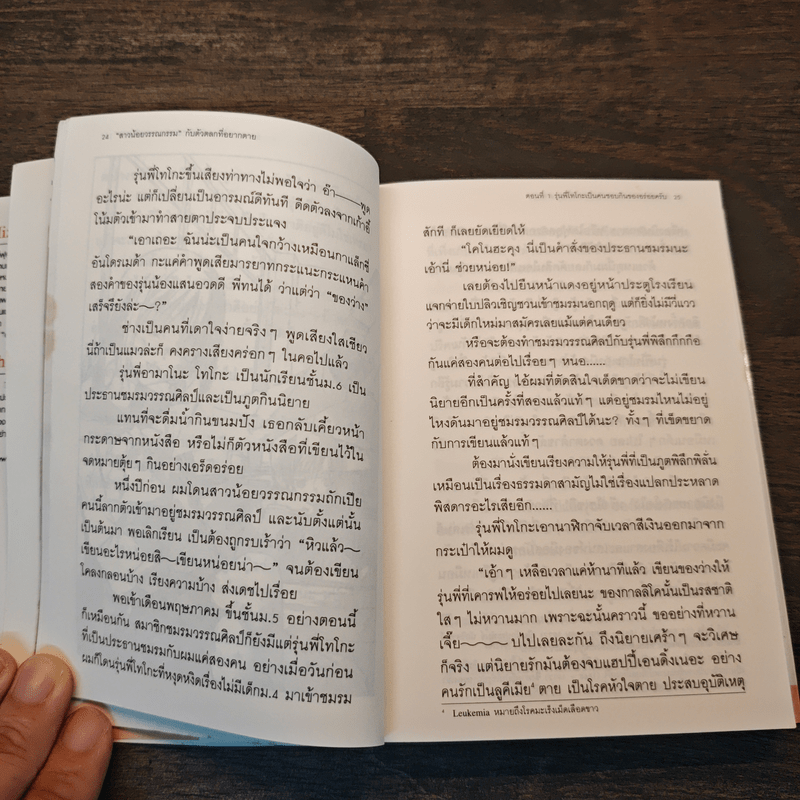 24 "สาวน้อยวรรณกรรม" กับตัวตลกที่อยากตาย
รุ่นพี่โทโกะขึ้นเสียงท่าทางไม่พอใจว่า อ๊า——พูด
อะไรน่ะ แต่ก็เปลี่ยนเป็นอารมณ์ดีทันที ดีดตัวลงจากเก้าอี้
โน้มตัวเข้ามาทำสายตาประจบประแจง
"เอาเถอะ ฉันน่ะเป็นคนใจกว้างเหมือนกาแล็กซี่
อันโดรเมด้า กะแค่คำพูดเสียมารยาทกระแนะกระแหนคำ
สองคำของรุ่นน้องแสนอวดดี พี่ทนได้ ว่าแต่ว่า "ของว่าง"
เสร็จรึยังล่ะ~?"
ช่างเป็นคนที่เดาใจง่ายจริงๆ พูดเสียงใสเชียว
นี่ถ้าเป็นแมวล่ะก็ คงครางเสียงคร่อกๆ ในคอไปแล้ว
รุ่นพี่อามาโนะ โทโกะ เป็นนักเรียนชั้นม.6 เป็น
ประธานชมรมวรรณศิลป์และเป็นภูตกินนิยาย
แทนที่จะดื่มน้ำกินขนมปัง เธอกลับเคี้ยวหน้า
กระดาษจากหนังสือ หรือไม่ก็ตัวหนังสือที่เขียนไว้ใน
จดหมายตุ้ยๆ กินอย่างเอร็ดอร่อย
หนึ่งปีก่อน ผมโดนสาวน้อยวรรณกรรมถักเปีย
คนนี้ลากตัวเข้ามาอยู่ชมรมวรรณศิลป์ และนับตั้งแต่นั้น
เป็นต้นมา พอเลิกเรียน เป็นต้องถูกรบเร้าว่า "หิวแล้ว~
เขียนอะไรหน่อยสิ~เขียนหน่อยน่า~" จนต้องเขียน
โคลงกลอนบ้าง เรียงความบ้าง ส่งเดชไปเรื่อย
พอเข้าเดือนพฤษภาคม ขึ้นชั้นม.5 อย่างตอนนี้
ก็เหมือนกัน สมาชิกชมรมวรรณศิลป์ก็ยังมีแต่รุ่นพี่โทโกะ
ที่เป็นประธานชมรมกับผมแค่สองคน อย่างเมื่อวันก่อน
ผมก็โดนรุ่นพี่โทโกะที่หงุดหงิดเรื่องไม่มีเด็กม.4 มาเข้าชมรม
ตอนที่ 1 รุ่นพี่โทโกะเป็นคนชอบกินของอร่อยครับ 25
สักที ก็เลยยัดเยียดให้
"โคโนฮะคุง นี่เป็นคำสั่งของประธานชมรมนะ
เอ้านี่ ช่วยหน่อย!"
เลยต้องไปยืนหน้าแดงอยู่หน้าประตูโรงเรียน
แจกจ่ายใบปลิวเชิญชวนเข้าชมรมนอกฤดู แต่ก็ยังไม่มีวี่แวว
ว่าจะมีเด็กใหม่มาสมัครเลยแม้แต่คนเดียว
หรือจะต้องทำชมรมวรรณศิลป์กับรุ่นพี่พิลึกกึกกือ
กันแค่สองคนต่อไปเรื่อยๆ หนอ......
ที่สำคัญ ไอ้ผมที่ตัดสินใจเด็ดขาดว่าจะไม่เขียน
นิยายอีกเป็นครั้งที่สองแล้วแท้ๆ แต่อยู่ชมรมไหนไม่อยู่
ไหงดันมาอยู่ชมรมวรรณศิลป์ได้นะ? ทั้งๆ ที่เข็ดขยาด
กับการเขียนแล้วแท้ๆ
ต้องมานั่งเขียนเรียงความให้รุ่นพี่ที่เป็นภูตพิลึกพิลั่น
เหมือนเป็นเรื่องธรรมดาสามัญไม่ใช่เรื่องแปลกประหลาด
พิสดารอะไรเสียอีก......
รุ่นพี่โทโกะเอานาฬิกาจับเวลาสีเงินออกมาจาก
กระเป๋าให้ผมดู
"เอ้าๆ เหลือเวลาแค่ห้านาทีแล้ว เขียนของว่างให้
รุ่นพี่ที่เคารพให้อร่อยไปเลยนะ ของกาลลิโคนั้นเป็นรสชาติ
ใสๆ ไม่หวานมาก เพราะฉะนั้นคราวนี้ ขออย่างที่หวาน
เจี๊ย~~~~บไปเลยละกัน ถึงนิยายเศร้าๆ จะวิเศษ
ก็จริง แต่นิยายรักมันต้องจบแฮปปี้เอนดิ้งเนอะ อย่าง
คนรักเป็นลูคีเมีย⁴ ตาย เป็นโรคหัวใจตาย ประสบอุบัติเหตุ
⁴ Leukemia หมายถึงโรคมะเร็งเม็ดเลือดขาว